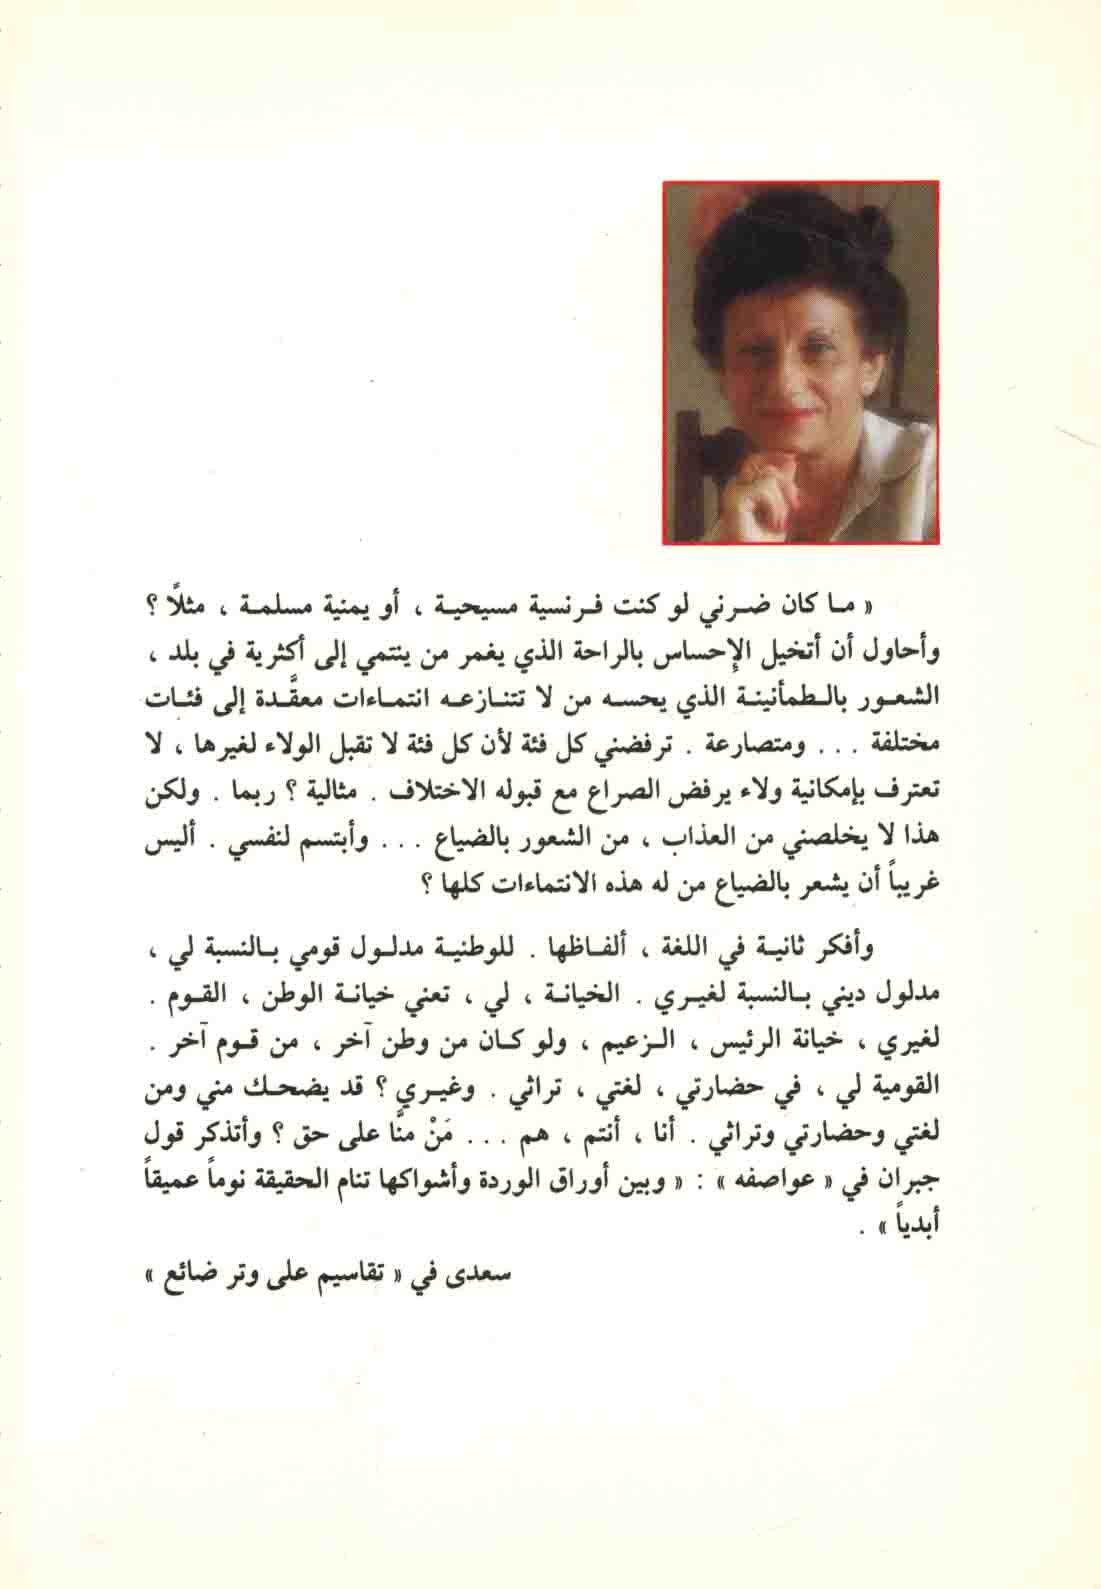 « ما كان ضرني لو كنت فرنسية مسيحية ، أو يمنية مسلمة ، مثلاً ؟
وأحاول أن أتخيل الإحساس بالراحة الذي يغمر من ينتمي إلى أكثرية في بلد ،
الشعور بالطمأنينة الذي يحسه من لا تتنازعه انتماءات معقَّدة إلى فئات
مختلفة ... ومتصارعة . ترفضني كل فئة لأن كل فئة لا تقبل الولاء لغيرها ، لا
تعترف بإمكانية ولاء يرفض الصراع مع قبوله الاختلاف . مثالية ؟ ربما . ولكن
هذا لا يخلصني من العذاب ، من الشعور بالضياع ... وأبتسم لنفسي . أليس
غريباً أن يشعر بالضياع من له هذه الانتماءات كلها ؟
وأفكر ثانية في اللغة ، ألفاظها . للوطنية مدلول قومي بالنسبة لي ،
مدلول ديني بالنسبة لغيري . الخيانة ، لي ، تعني خيانة الوطن ، القوم .
لغيري ، خيانة الرئيس ، الزعيم ، ولو كان من وطن آخر ، من قوم آخر .
القومية لي ، في حضارتي ، لغتي ، تراثي . وغيري ؟ قد يضحك مني ومن
لغتي وحضارتي وتراثي . أنا ، أنتم ، هم ... مَنْ منَّا على حق ؟ وأتذكر قول
جبران في « عواصفه » : « وبين أوراق الوردة وأشواكها تنام الحقيقة نوماً عميقاً
أبدياً » .
سعدى في « تقاسيم على وتر ضائع »